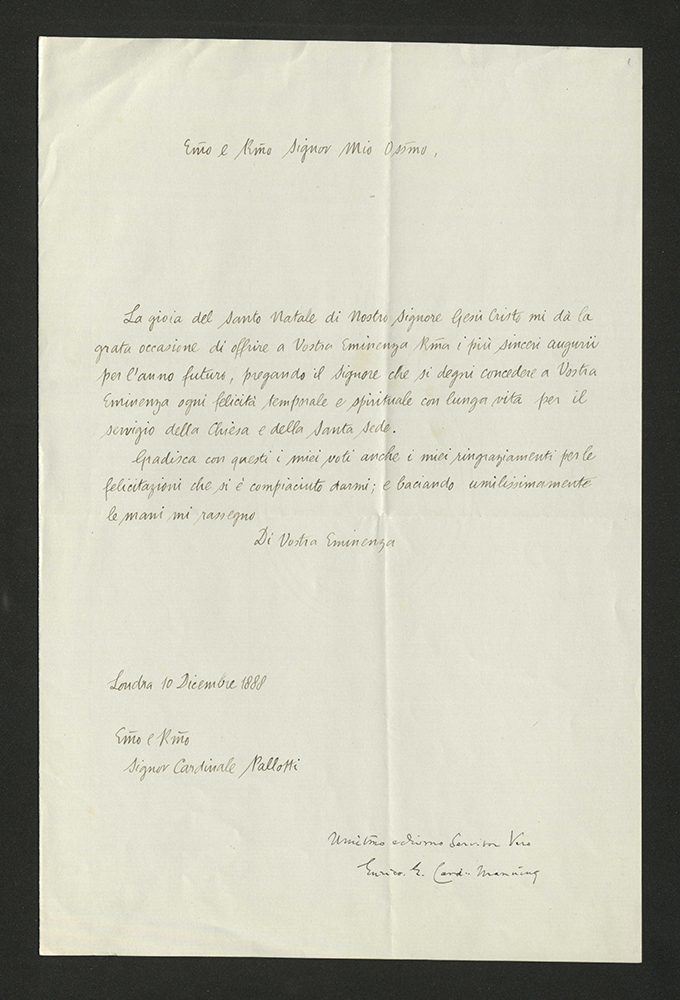 Em̃o e Rm̃o Signor Mio Ossm̃o,
La gioia del Santo Natale di Nostro Signore Gesù Cristo mi dà la
grata occasione di offrire a Vostra Eminenza Rm̃a i più sinceri augurii
per l'anno futuro, pregando il Signore che si degni concedere a Vostra
Eminenza ogni felicità temporale e spirituale con lunga vita per il
servigio della Chiesa e della Santa Sede.
Gradisca con questi i miei voti anche i miei ringraziamenti per le
felicitazioni che si è compiaciuto darmi; e baciando umilissimamente
le mani mi rassegno
Di Vostra Eminenza
Londra 10 Dicembre 1888
Em̃o e Rm̃o
Signor Cardinale Pallotti
Servitor Vero
Enrico. E. Card. Manning